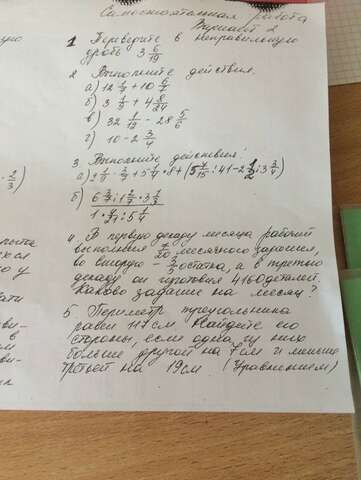 Самостоятельная работа
Вариант 2
1 Переведите в неправильную
дробь 3 6/19
2 Выполните действия.
а) 12 1/7 + 10 6/7
б) 3 1/3 + 4 8/21
в) 32 1/12 - 28 5/6
г) 10 - 2 3/4
3. Выполните действия:
4 В первую декаду месяца рабочий
выполнил 7/20 месячного задания,
во вторую - 3/5 остатка, а в третью
декаду он изготовил 4160 деталей.
Каково задание на месяц?
5 Периметр треугольника
равен 117 см. Найдите его
стороны, если одна из них
больше другой на 7 см и меньше
третьей на 19 см (Уравнением)